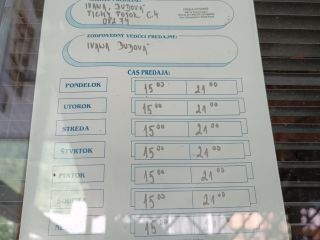 IVANA DUDOVÁ
TICHÝ POTOK Č.4
082 74
ZODPOVEDNÝ VEDÚCI PREDAJNE:
IVANA DUDOVÁ
ČAS PREDAJA:
PONDELOK 15 00 21 00
UTOROK 15 00 21 00
STREDA 15 00 21 00
ŠTVRTOK 15 00 21 00
PIATOK 15 00 21 00
SOBOTA 15 00 21 00
15 00